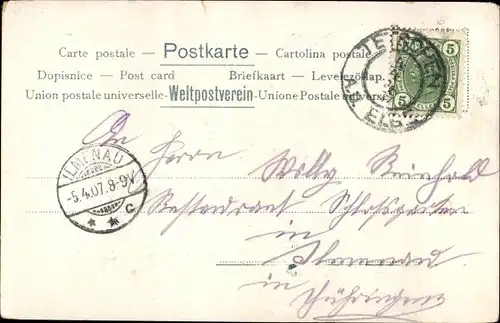 Carte postale — Postkarte — Cartolina postale
Dopisnice — Post card Briefkaart — Levelező-lap.
Union postale universelle - Weltpostverein - Unione Postale universale
TETSCHEN
ELBE
5 5
5 5
An Herrn
Willy Reinhold
Restaurant Schlossgarten
in
Ilmenau
in Thüringen
ILMENAU
-5.4.07.8-9V
* * c